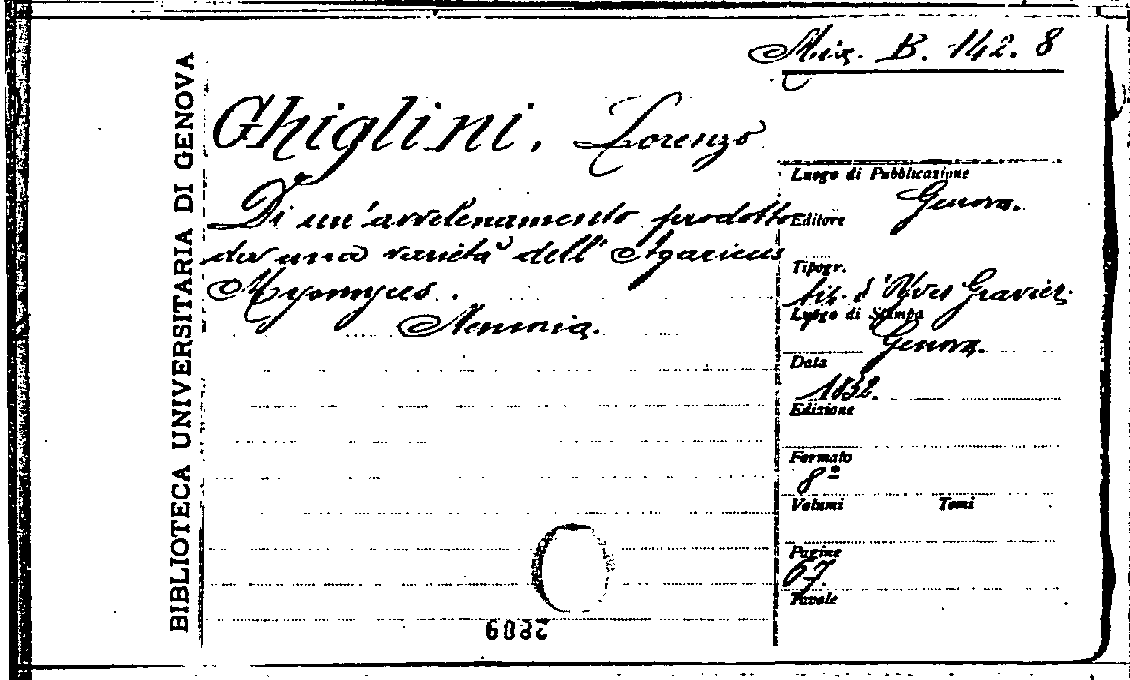 Mix. B. 142. 8
BIBLIOTECA UNIVERSITARIA DI GENOVA
Ghiglini, Lorenzo
Di un'avvelenamento prodotto
da una varietà dell'Agaricus
Myomyces.
Memoria.
Luogo di Pubblicazione
Genova.
Editore
Tipogr.
tip. d'Yves Gravier.
Luogo di Stampa
Genova.
Data
1832.
Edizione
Formato
8º
Volumi Tomi
Pagine
67.
Tavole
2809